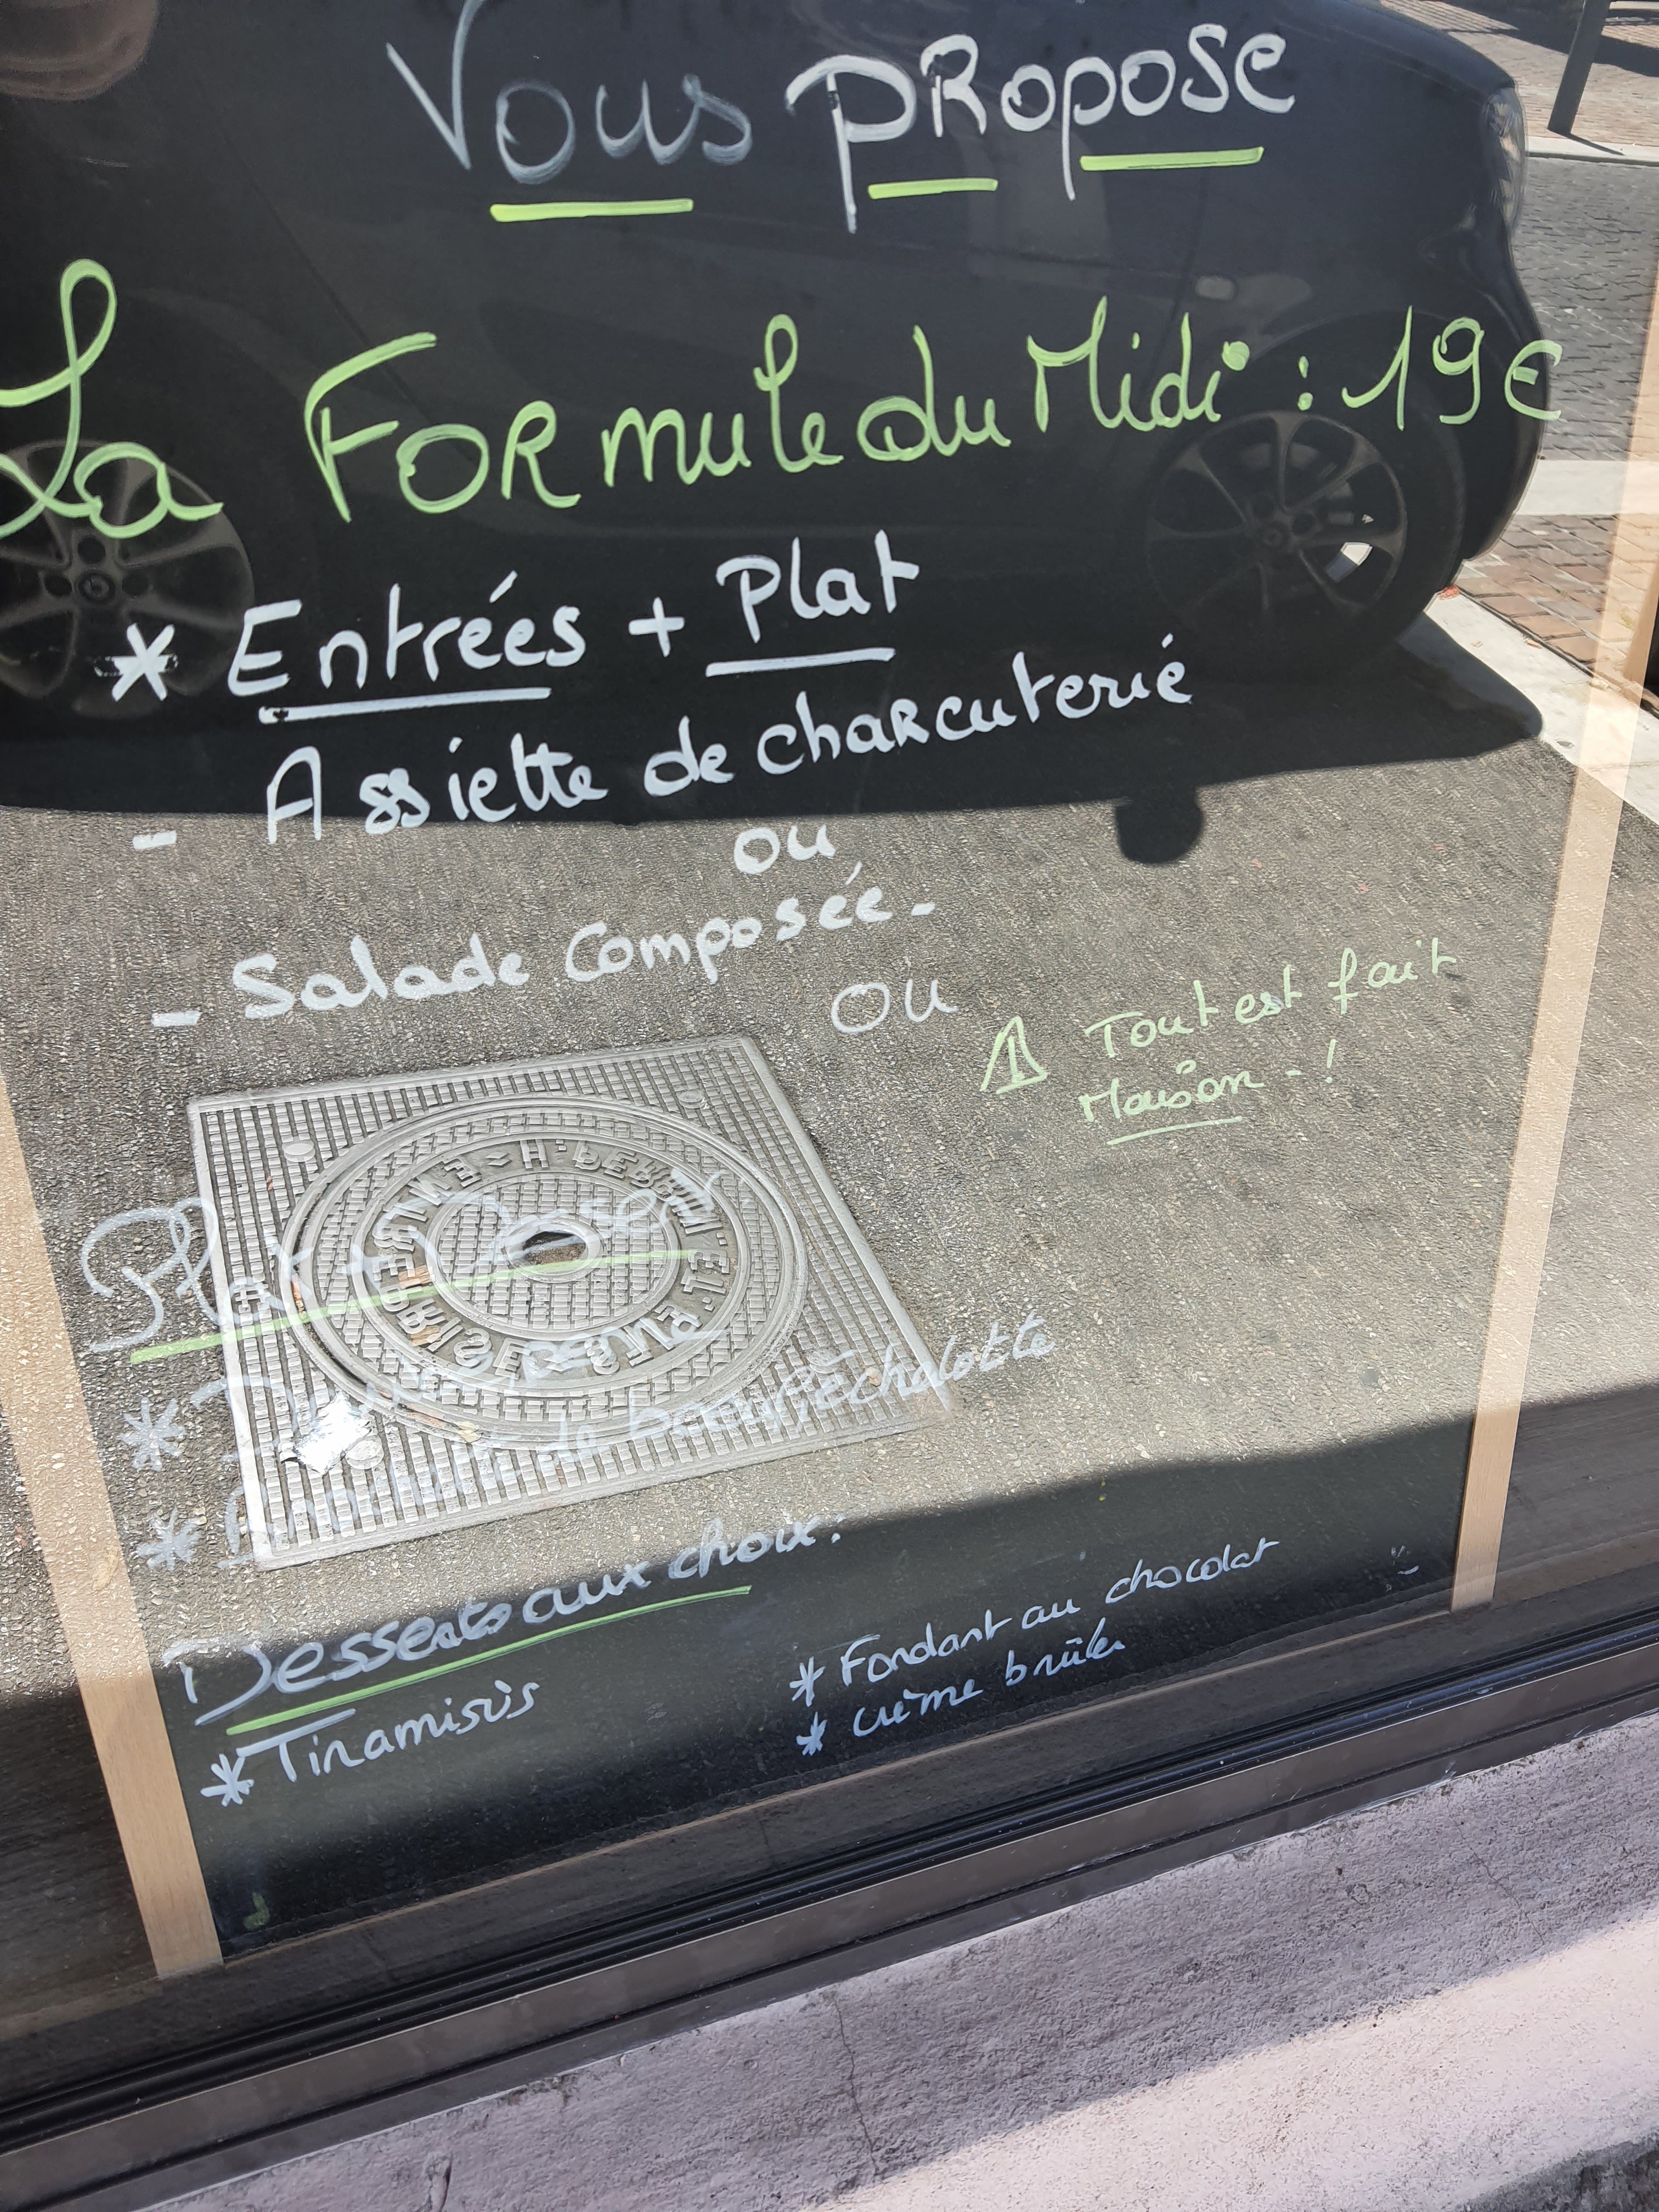 Vous propose
La Formule du Midi : 19€
* Entrées + Plat
- Assiette de charcuterie
ou
- Salade Composée -
ou
Tout est fait
Maison - !
Plat + Dessert
*
* de boeuf échalotte
Desserts aux choix :
* Tiramisùs
* Fondant au chocolat
* crème brûlée